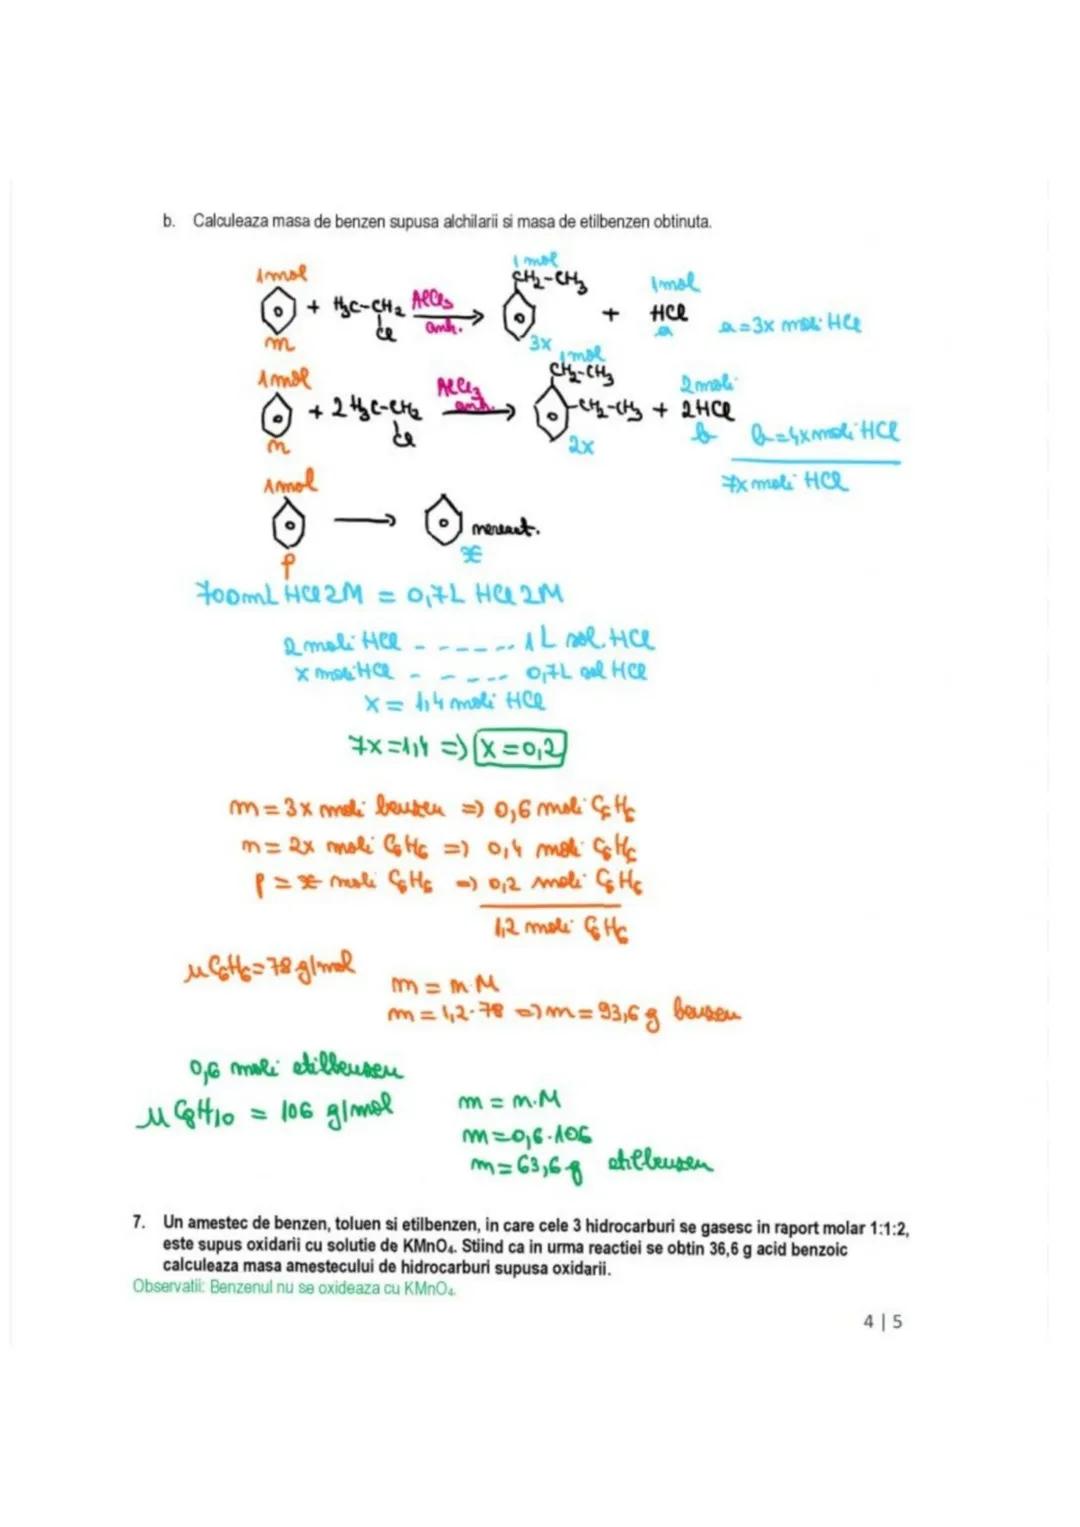 b. Calculeaza masa de benzen supusa alchilarii si masa de etilbenzen obtinuta.
1mol 1mol 1mol
+ H₃C-CH₂ AlCl₃ CH₂-CH₃ + HCl a=3x moli HCl
Cl anh.
m 3x a
1mol 1mol 2moli
+ 2H₃C-CH₂ AlCl₃ CH₂-CH₃
Cl anh. -CH₂-CH₃ + 2HCl b=4x moli HCl
n 2x b
7x moli HCl
1mol
nereact.
p x
700mL HCl 2M = 0,7L HCl 2M
2 moli HCl - - - - - - - 1L sol. HCl
x moli HCl - - - - - - 0,7L sol HCl
x = 1,4 moli HCl
7x=1,4 => x=0,2
m = 3x moli benzen => 0,6 moli C₆H₆
n = 2x moli C₆H₆ => 0,4 moli C₆H₆
p = x moli C₆H₆ => 0,2 moli C₆H₆
1,2 moli C₆H₆
μ C₆H₆=78 g/mol
m = n·M
m = 1,2·78 => m = 93,6 g benzen
0,6 moli etilbenzen
μ C₈H₁₀ = 106 g/mol
m = n·M
m=0,6·106
m=63,6 g etilbenzen
7. Un amestec de benzen, toluen si etilbenzen, in care cele 3 hidrocarburi se gasesc in raport molar 1:1:2,
este supus oxidarii cu solutie de KMnO₄. Stiind ca in urma reactiei se obtin 36,6 g acid benzoic
calculeaza masa amestecului de hidrocarburi supusa oxidarii.
Observatii: Benzenul nu se oxideaza cu KMnO₄.
4 | 5